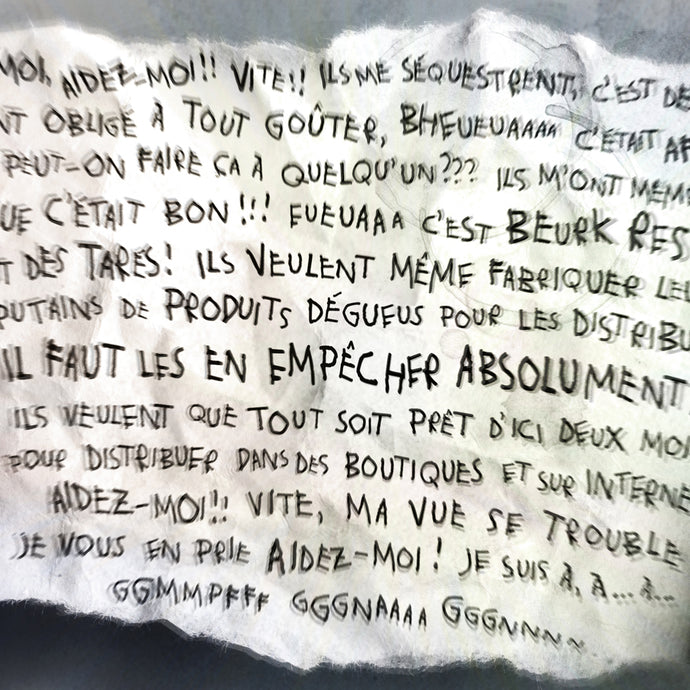 MOI, AIDEZ-MOI!! VITE!! ILS ME SÉQUESTRENT, C'EST DE
NT OBLIGÉ À TOUT GOÛTER, BHEUEUAAAA C'ÉTAIT AF
PEUT-ON FAIRE ÇA À QUELQU'UN??? ILS M'ONT MÊME
UE C'ÉTAIT BON!!! EUEUAAA C'EST BEURK RES
T DES TARÉS! ILS VEULENT MÊME FABRIQUER LE
PUTAINS DE PRODUITS DÉGUEUS POUR LES DISTRIBU
IL FAUT LES EN EMPÊCHER ABSOLUMENT
ILS VEULENT QUE TOUT SOIT PRÊT D'ICI DEUX MOI
POUR DISTRIBUER DANS DES BOUTIQUES ET SUR INTERNE
AIDEZ-MOI!! VITE, MA VUE SE TROUBLE
JE VOUS EN PRIE AIDEZ-MOI! JE SUIS À, À... À...
GGMMMPFFF GGGNAAAA GGGNNNN